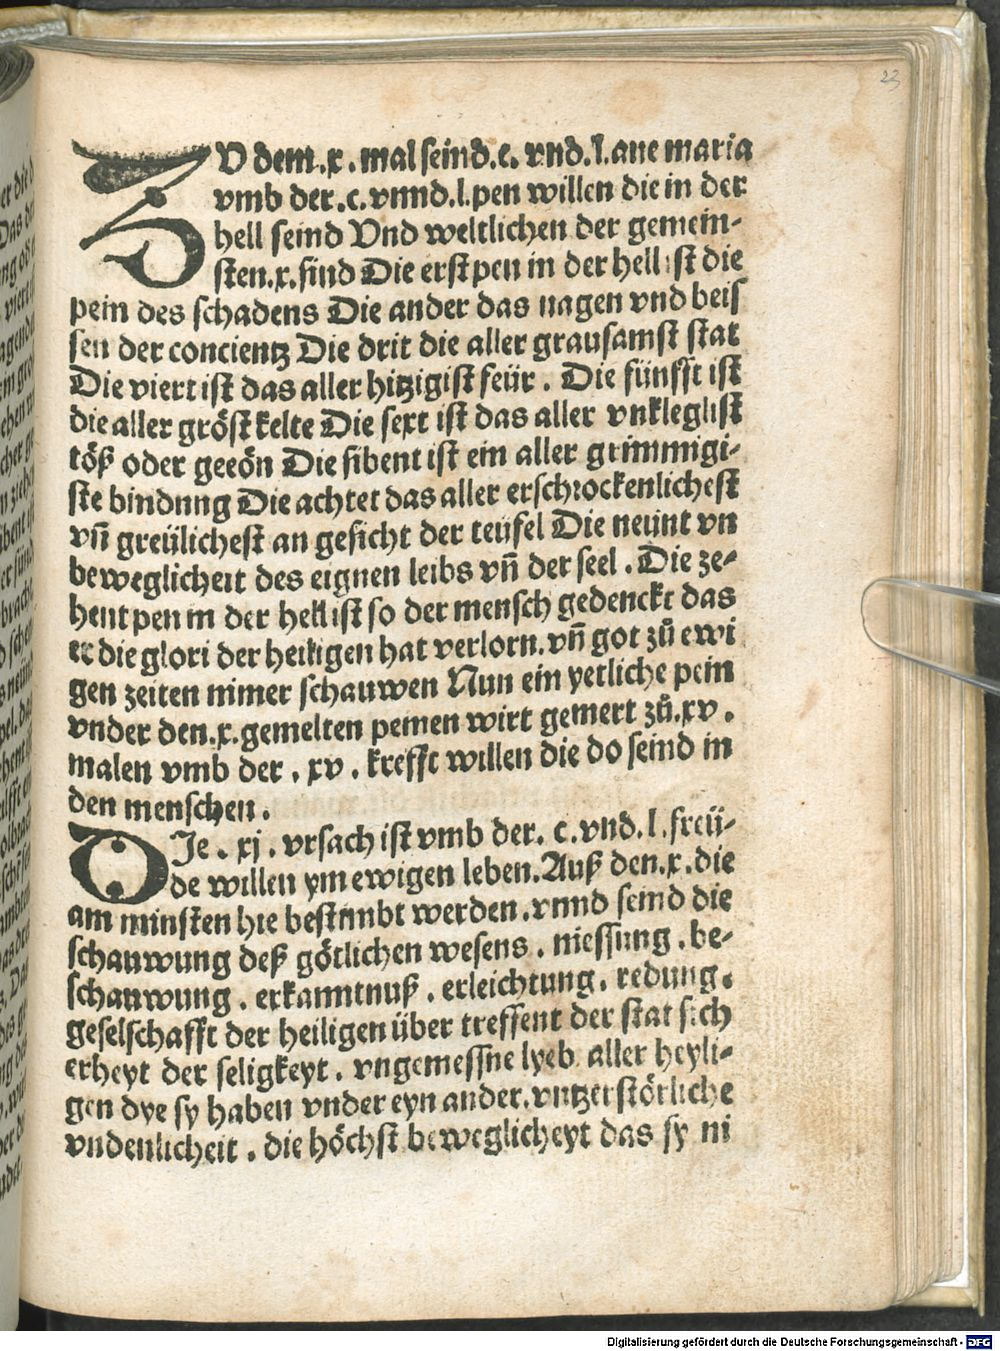 23
ZU dem .x. mal seind .c. vnd .l. aue maria
vmb der .c. vnnd .l. pen willen die in der
hell seind Vnd weltlichen der gemein-
sten .x. sind Die erst pen in der hell ist die
pein des schadens Die ander das nagen vnd beis
sen der concientz Die drit die aller grausamst stat
Die viert ist das aller hitzigist feür . Die fünfft ist
die aller gröst kelte Die sext ist das aller vnkleglist
töß oder geeön Die sibent ist ein aller grimmigi-
ste bindung Die achtet das aller erschrockenlichest
vn̄ greülichest an gesicht der teüfel Die neünt vn
beweglicheit des eignen leibs vn̄ der seel . Die ze-
hent pen in der hell ist so der mensch gedenckt das
er die glori der heiligen hat verlorn . vn̄ got zů ewi
gen zeiten nimer schauwen Nun ein yetliche pein
vnder den .x. gemelten peinen wirt gemert zů .xv.
malen vmb der . xv . krefft willen die do seind in
den menschen .
DJe . xj . vrsach ist vmb der . c . vnd . l . freü-
de willen ym ewigen leben . Auß den .x. die
am minsten hie bestimbt werden . vnnd seind die
schauwung deß götlichen wesens . niessung . be-
schauwung . erkanntnuß . erleichtung . redung .
geselschafft der heiligen über treffent der stat sich
erheyt der seligkeyt . vngemessne lyeb aller heyli-
gen dye sy haben vnder eyn ander . vntzerstörliche
vndenlicheit . die höchst beweglicheyt das sy ni
Digitalisierung gefördert durch die Deutsche Forschungsgemeinschaft - DFG